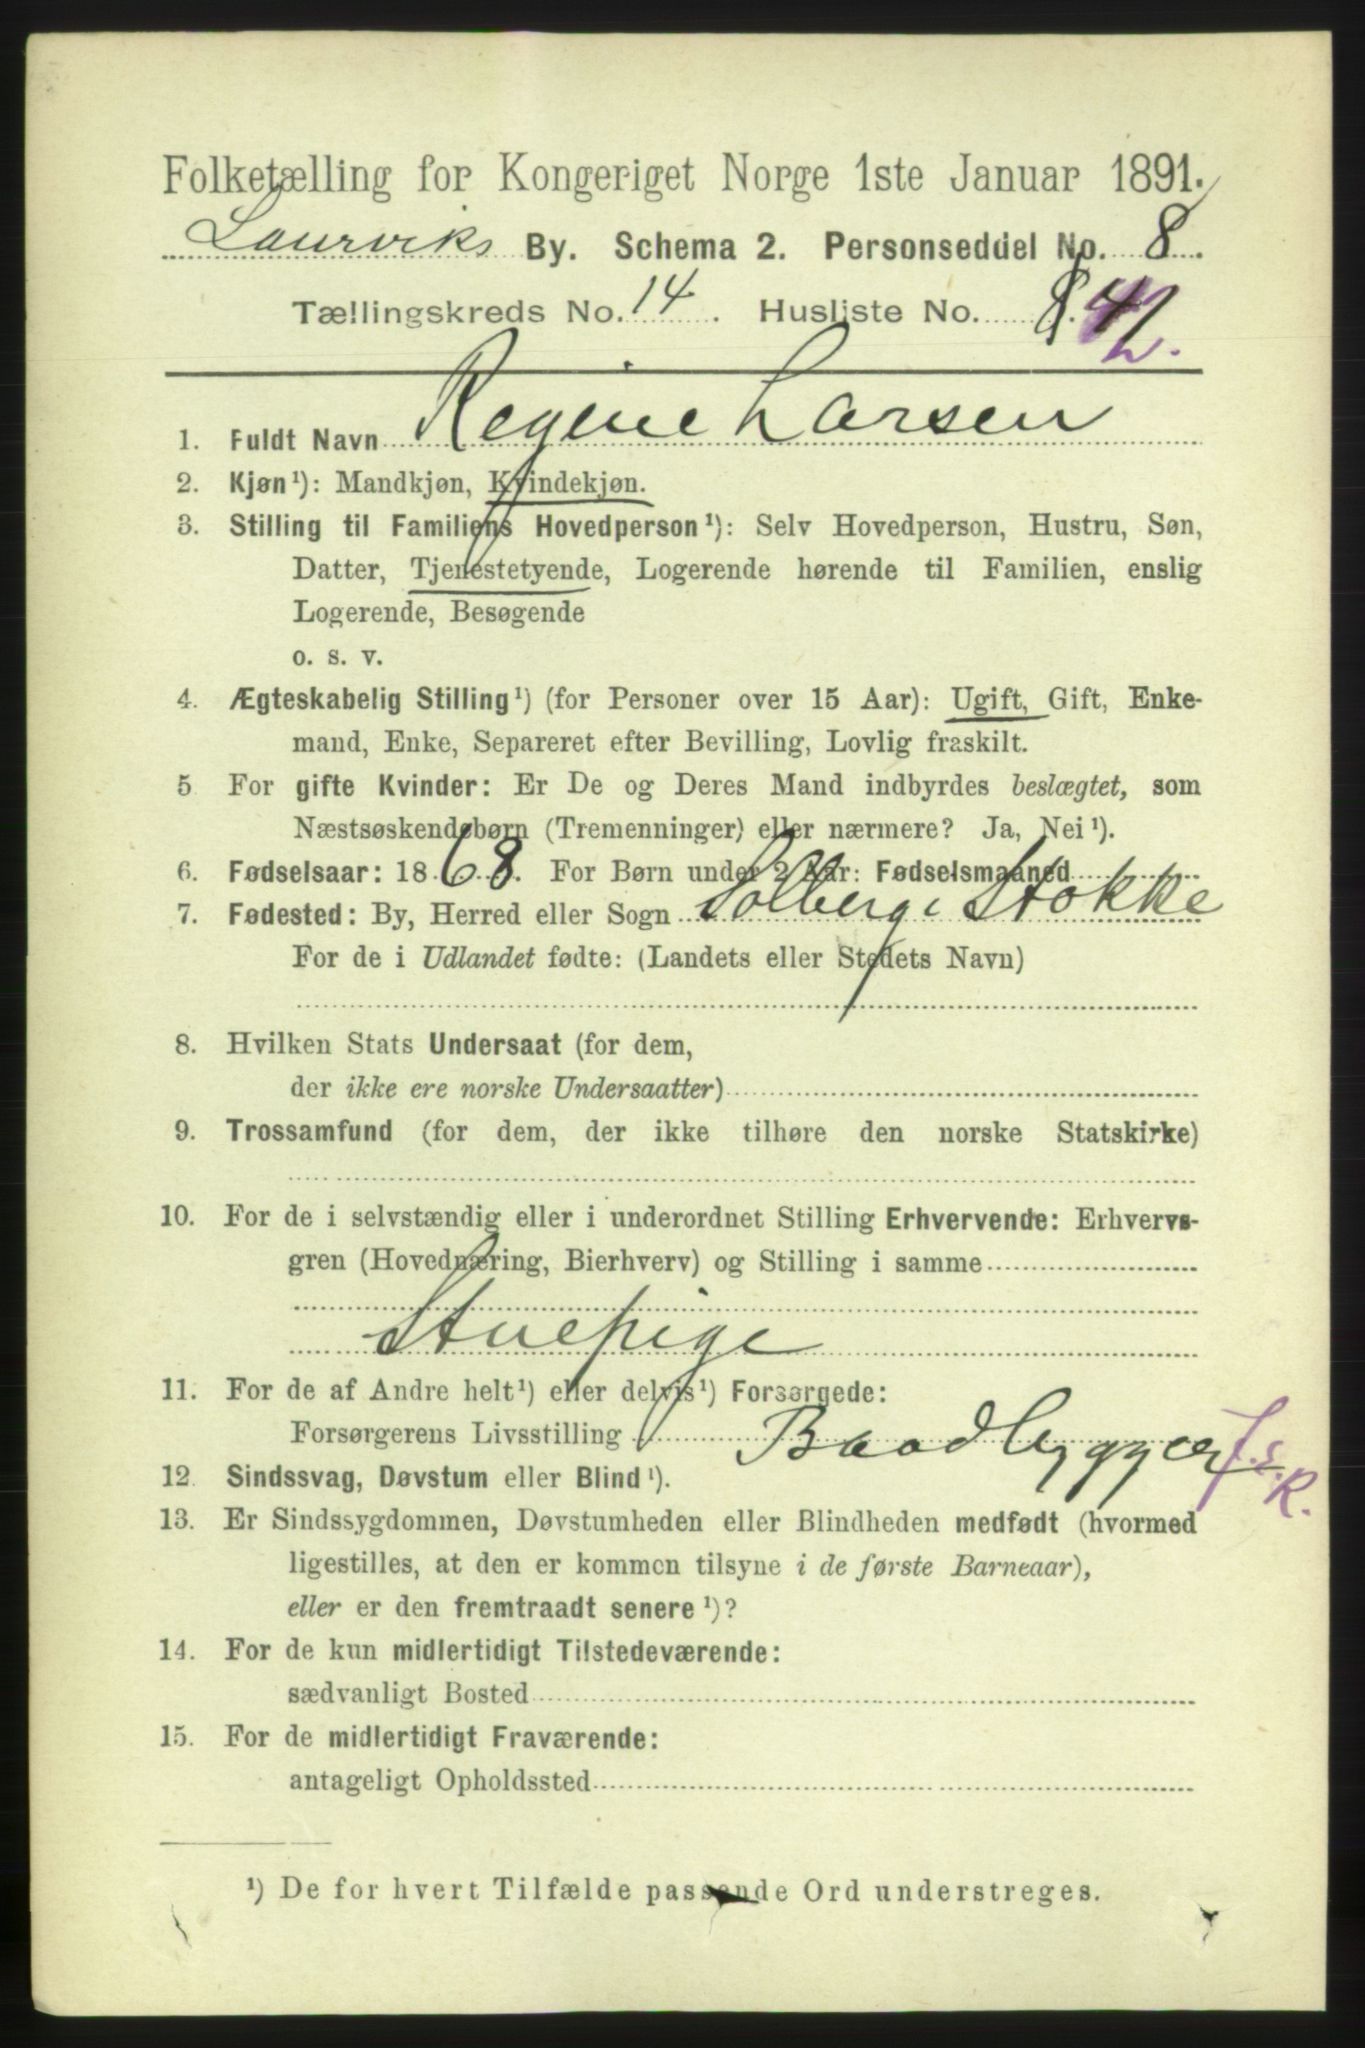 Folketælling for Kongeriget Norge 1ste Januar 1891.
Laurviks By. Schema 2. Personseddel No. 8.
Tællingskreds No. 14. Husliste No. 8. 42.
1. Fuldt Navn Regine Larsen
2. Kjøn¹): Mandkjøn, Kvindekjøn.
3. Stilling til Familiens Hovedperson¹): Selv Hovedperson, Hustru, Søn,
Datter, Tjenestetyende, Logerende hørende til Familien, enslig
Logerende, Besøgende
o. s. v.
4. Ægteskabelig Stilling¹) (for Personer over 15 Aar): Ugift, Gift, Enke-
mand, Enke, Separeret efter Bevilling, Lovlig fraskilt.
5 For gifte Kvinder: Er De og Deres Mand indbyrdes beslægtet, som
Næstsøskendebørn (Tremenninger) eller nærmere? Ja, Nei¹).
6. Fødselsaar: 1868. For Børn under 2 Aar: Fødselsmaaned
7. Fødested: By, Herred eller Sogn Solberg i Stokke
For de i Udlandet fødte: (Landets eller Stedets Navn)
8. Hvilken Stats Undersaat (for dem,
der ikke ere norske Undersaatter)
9. Trossamfund (for dem, der ikke tilhøre den norske Statskirke)
10. For de i selvstændig eller i underordnet Stilling Erhvervende: Erhvervs-
gren (Hovednæring, Bierhverv) og Stilling i samme
Stuepige
11. For de af Andre helt¹) eller delvis¹) Forsørgede:
Forsørgerens Livsstilling Baadbygger f.s.R.
12 Sindssvag, Døvstum eller Blind¹).
13. Er Sindssygdommen, Døvstumheden eller Blindheden medfødt (hvormed
ligestilles, at den er kommen tilsyne i de første Barneaar),
eller er den fremtraadt senere¹)?
14. For de kun midlertidigt Tilstedeværende:
sædvanligt Bosted
15. For de midlertidigt Fraværende:
antageligt Opholdssted
¹) De for hvert Tilfælde passende Ord understreges.